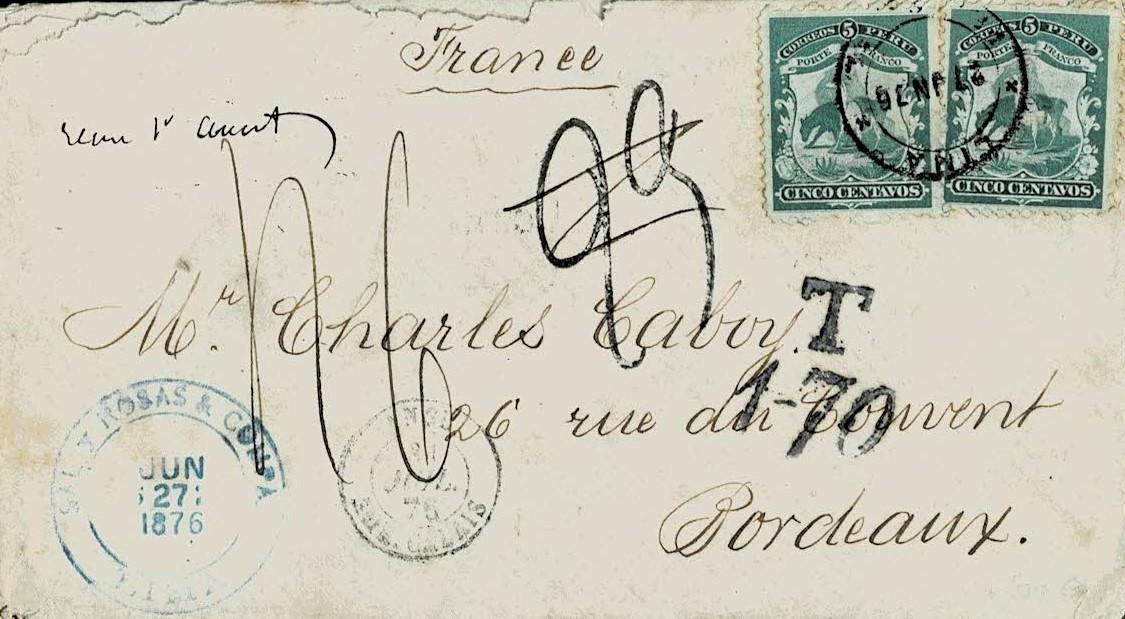 France
CORREOS 5 PERU
PORTE FRANCO
CINCO CENTAVOS
CORREOS 5 PERU
PORTE FRANCO
CINCO CENTAVOS
LIMA
27 JN 76
Mr. Charles Caboy.
T
1-70
26 rue du Couvent
Bordeaux.
ROSAS & COMPA
JUN
27
1876
LIMA
76
CALAIS